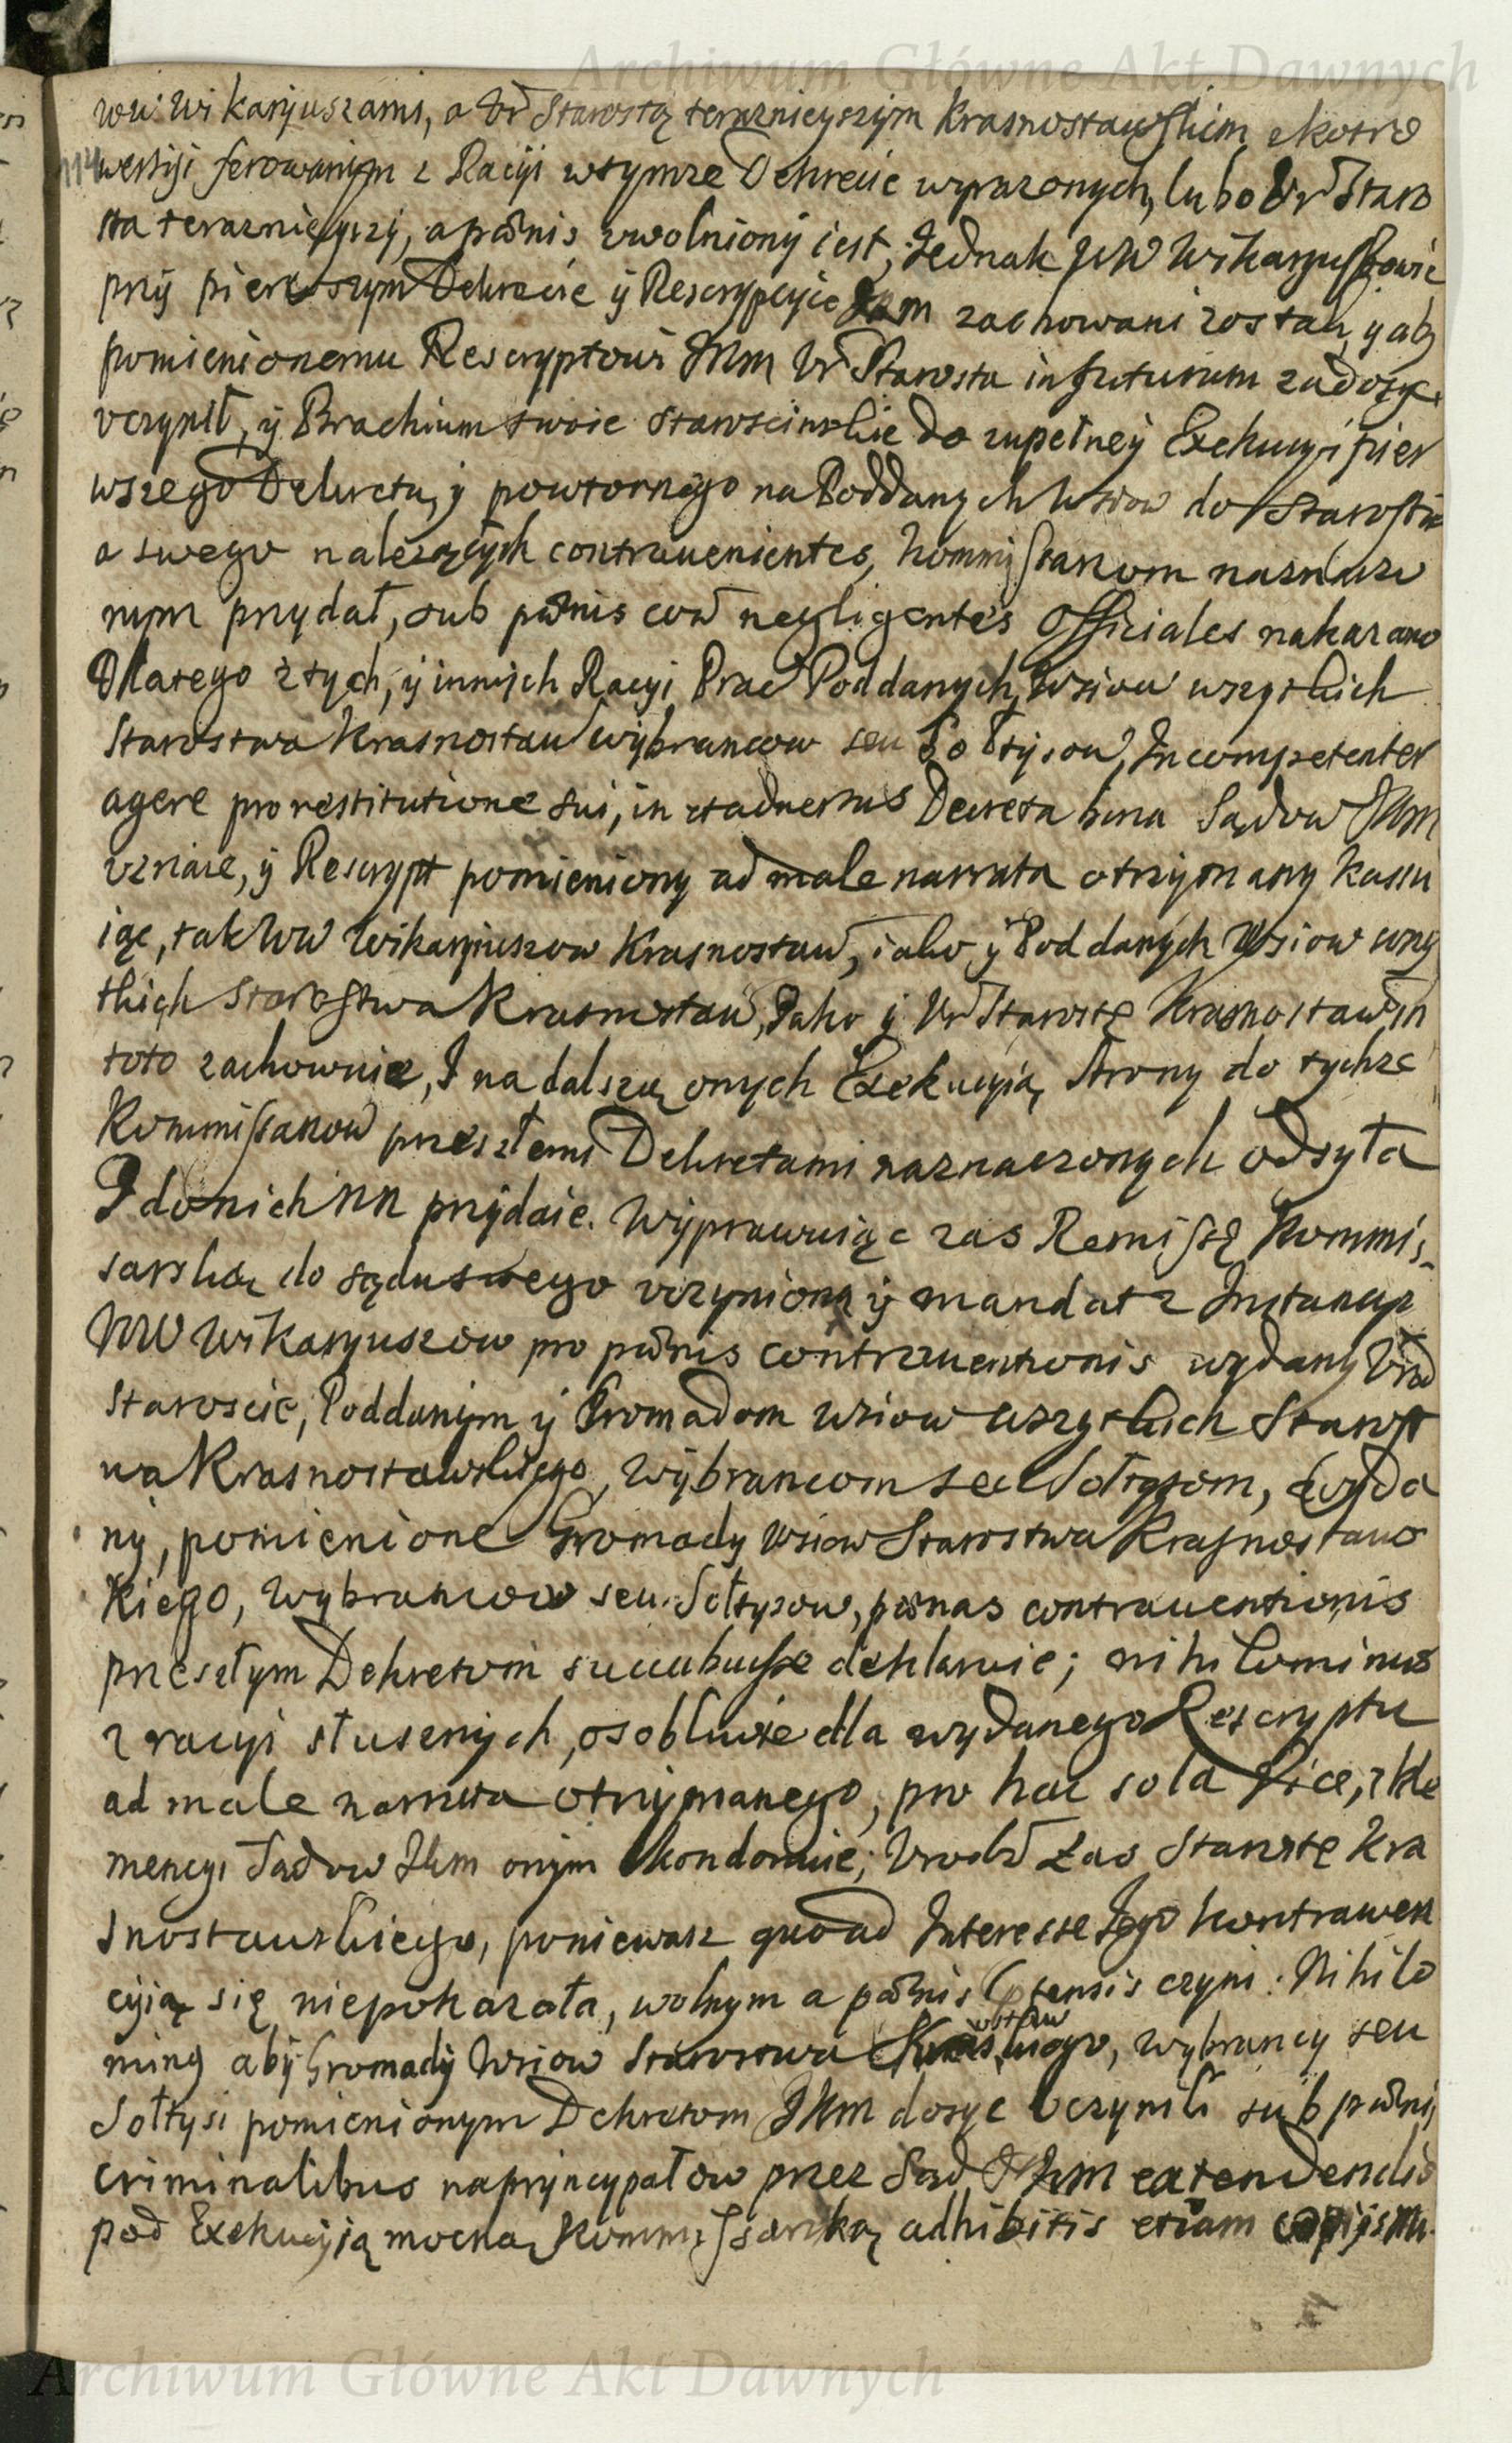 Archiwum Główne Akt Dawnych
ww Wikaryuszami, a Ur Starostą teraznieyszym Krasnostawskim, z kotro
wersyi ferowanym z Racyi wtymze Dekrecie wyrazonych, lubo Ur Staro
sta teraznieyszy, a pœnis uwolniony iest, Jednak WW Wikaryuszowie
przy pierwszym Dekrecie ÿ Rescrypcyie JKM zachowani zostali, y aby
pomienionemu Rescryptowi JKM Ur Starosta in futurum zadosyc
uczynił, ÿ Brachium swoie Starosciнskie do zupełney Exekucyi pier
wszego Dekretu, y powtornego na Poddanych Wsiow do Starostw
a swego nalezących contravenientes, Kommissarzom naznaczo
nym przydał, sub pœnis con negligentes Officiales nakazano
Dlatego z tych, ÿ innych Racyi Prac Poddanych, Wsiow wszystkich
Starostwa Krasnostaw wybrancow seu Sołtysow, Incompetenter
agere pro restitutione sui, in et adversus Decreta bina Sądow JKM
uznaie, ÿ Rescrypt pomieniony ad male narrata otrzymany kassu
iąc, tak WW Wikaryuszow Krasnostaw, iako ÿ Poddanych Wsiow wszy
tkich Starostwa Krasnostaw, Jako ÿ Ur Starostę Krasnostaw in
toto zachownie, I na dalszą onych Exekucyią, Strony do tychze
Kommissarzow przeszłemi Dekretami naznaczonych odsyła
I do nich NN przydaie. Wyprawuiąc zas Remissę Kommis
sarską do sądu swego uczynioną ÿ mandat z Instancyi
WW Wikaryuszow pro pœnis contraventionis wydany Urod
Staroscie, Poddanym ÿ Gromadom Wsiow wszystkich Starost
wa Krasnostawskiego, Wybrancom seu Sołtysom, wyda
ny, pomienione Gromady Wsiow Starostwa Krasnostaws
kiego, Wybrancow seu Sołtysow, pœnas contraventionis
przeszłym Dekretom succubuisse deklaruie; nihilominus
z racyi słusznych, osobliwie dla wydanego Rescryptu
ad male narrata otrzymanego, pro hac sola vice, z kle
mencyi Sądow JKM onym kondonuie; Urodz zas Starostę Kra
snostawskiego, poniewasz quoad Interesse Jego kontrawen
cyią się niepokazała, wolnym a pœnis Ptensis czyni. Nihilo
minus aby Gromady Wsiow Starostwa Krasnostawskiego, wybrancy seu
Sołtysi pomienionym Dekretom JKM dosyc uczynili sub pœnis
criminalibus na pryncypałow przez Sąd JKM extendendis
pod Exekucyią mocną Kommissarską adhibitis etiam
Archiwum Główne Akt Dawnych